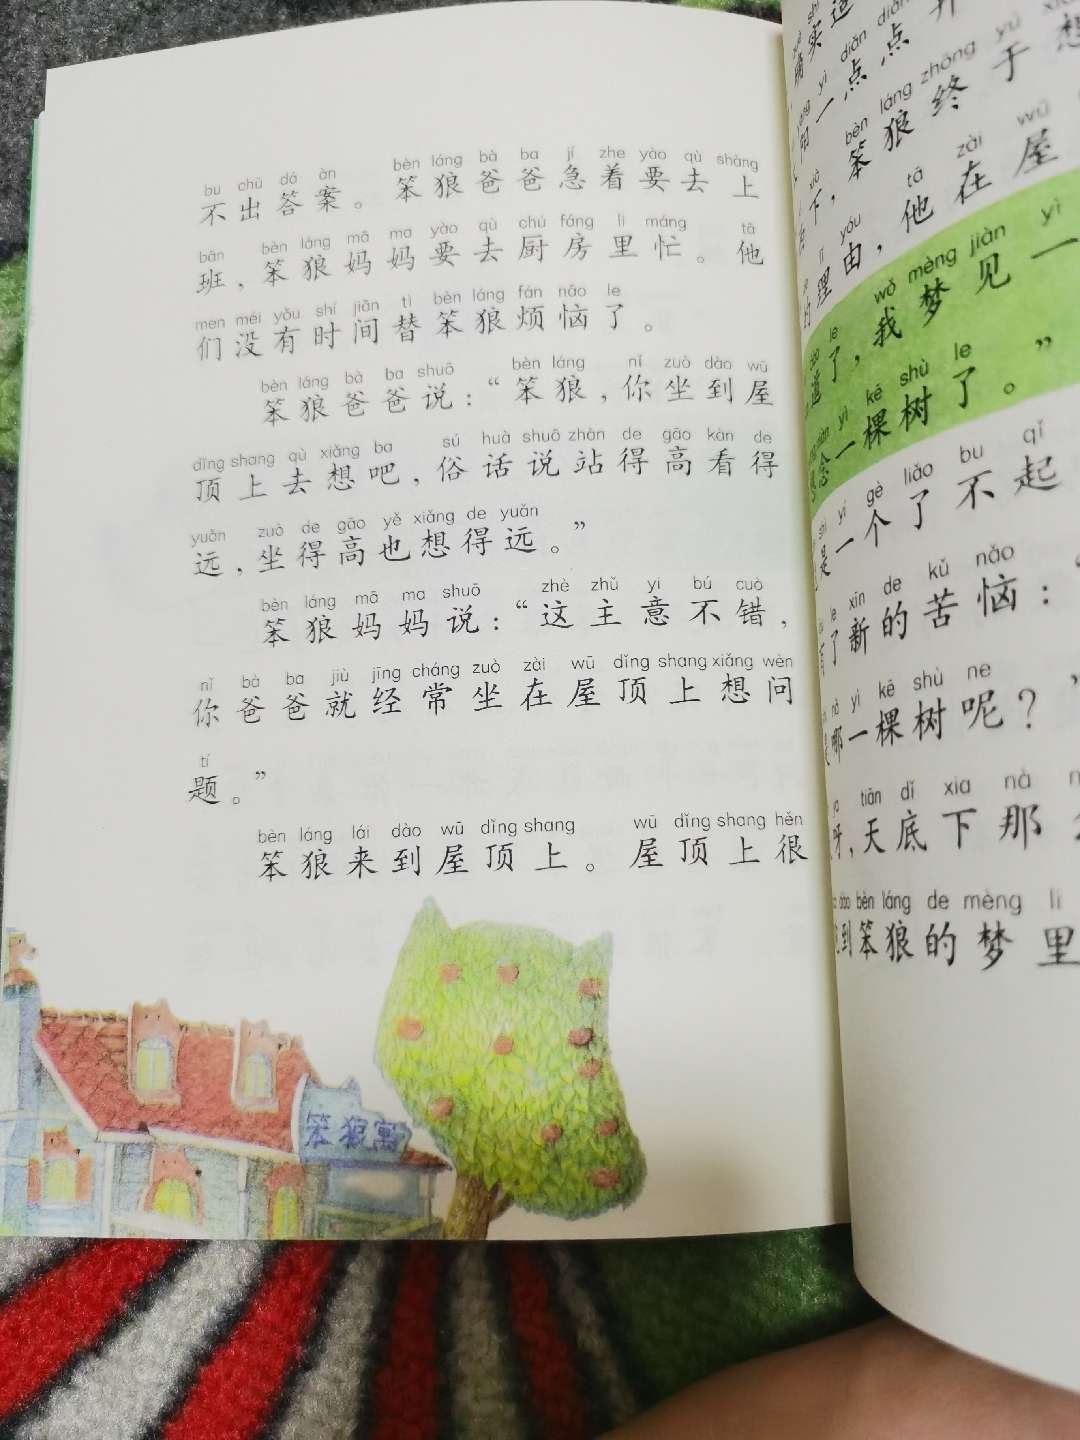 bu chū dá àn bèn láng bà ba jí zhe yào qù shàng
不出答案。笨狼爸爸急着要去上
bān bèn láng mā ma yào qù chú fáng li máng tā
班，笨狼妈妈要去厨房里忙。他
men méi yǒu shí jiān tì bèn láng fán nǎo le
们没有时间替笨狼烦恼了。
bèn láng bà ba shuō bèn láng nǐ zuò dào wū
笨狼爸爸说：“笨狼，你坐到屋
dǐng shang qù xiǎng ba sú huà shuō zhàn de gāo kàn de
顶上去想吧，俗话说站得高看得
yuǎn zuò de gāo yě xiǎng de yuǎn
远，坐得高也想得远。”
bèn láng mā ma shuō zhè zhǔ yi bú cuò
笨狼妈妈说：“这主意不错，
nǐ bà ba jiù jīng cháng zuò zài wū dǐng shang xiǎng wèn
你爸爸就经常坐在屋顶上想问
tí
题。”
bèn láng lái dào wū dǐng shang wū dǐng shang hěn
笨狼来到屋顶上。屋顶上很
笨狼寓
shí
实
yì diǎn diǎn
一点点
bèn láng zhōng yú
下，笨狼终于想
lǐ yóu tā zài wū
理由，他在屋
le wǒ mèng jiàn yì
道了，我梦见一
yì kē shù le
念一棵树了。”
shì yí gè liǎo bu qǐ
是一个了不起
le xīn de kǔ nǎo
了新的苦恼：“
nǎ yì kē shù ne
哪一棵树呢？”
ya tiān dǐ xia nà
呀，天底下那
dào bèn láng de mèng li
到笨狼的梦里